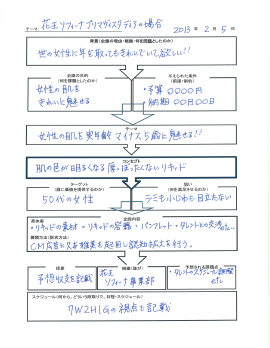 テーマ: 花王ソフィーナプリマヴィスタディアの場合 2013 年 2 月 5 日
背景(企画の理由・戦略・何を問題としたのか)
世の女性に年を取ってもきれいでいて欲しい!!
企画の目的
(何を課題としたのか)
女性の肌を
きれいに魅せる
与えられた条件
(前提・制約)
・予算 ○○○○円
・納期 ○○月○○日
テーマ
女性の肌を実年齢 マイナス5歳に魅せる!!
コンセプト
肌の色が明るくなる厚ぼったくないリキッド
ターゲット
(誰に価値を提供するのか)
50代の女性
狙い
(何を満足させるのか)
シミも小じわも目立たない
企画内容
具体案
・リキッドの素材・リキッドの容器・パンフレット・タレントとの交渉
展開方法
CM広告に
を起用し認知拡大を行う。
予算
予想収支を記載
組織(誰が)
花王
ソフィーナ事業部
予想される問題点
・タレントのスケジュール調整
スケジュール(何から、どういう段取りで、日程・スケジュール)
7W2H1Gの視点で記載